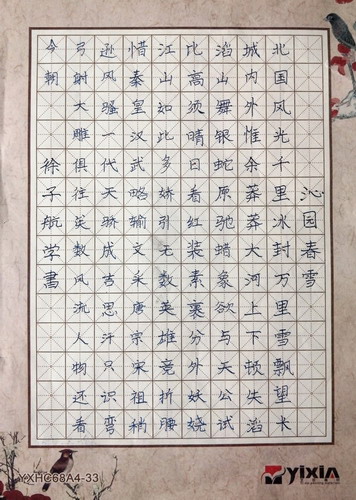 沁园春雪
北国风光千里冰封万里雪飘望长
城内外惟余莽莽大河上下顿失滔
滔山舞银蛇原驰蜡象欲与天公试
比高须晴日看红装素裹分外妖娆
江山如此多娇引无数英雄竞折腰
惜秦皇汉武略输文采唐宗宋祖稍
逊风骚一代天骄成吉思汗只识弯
弓射大雕俱往矣数风流人物还看
今朝
徐子航学书
YXHC68A4-33
yixia